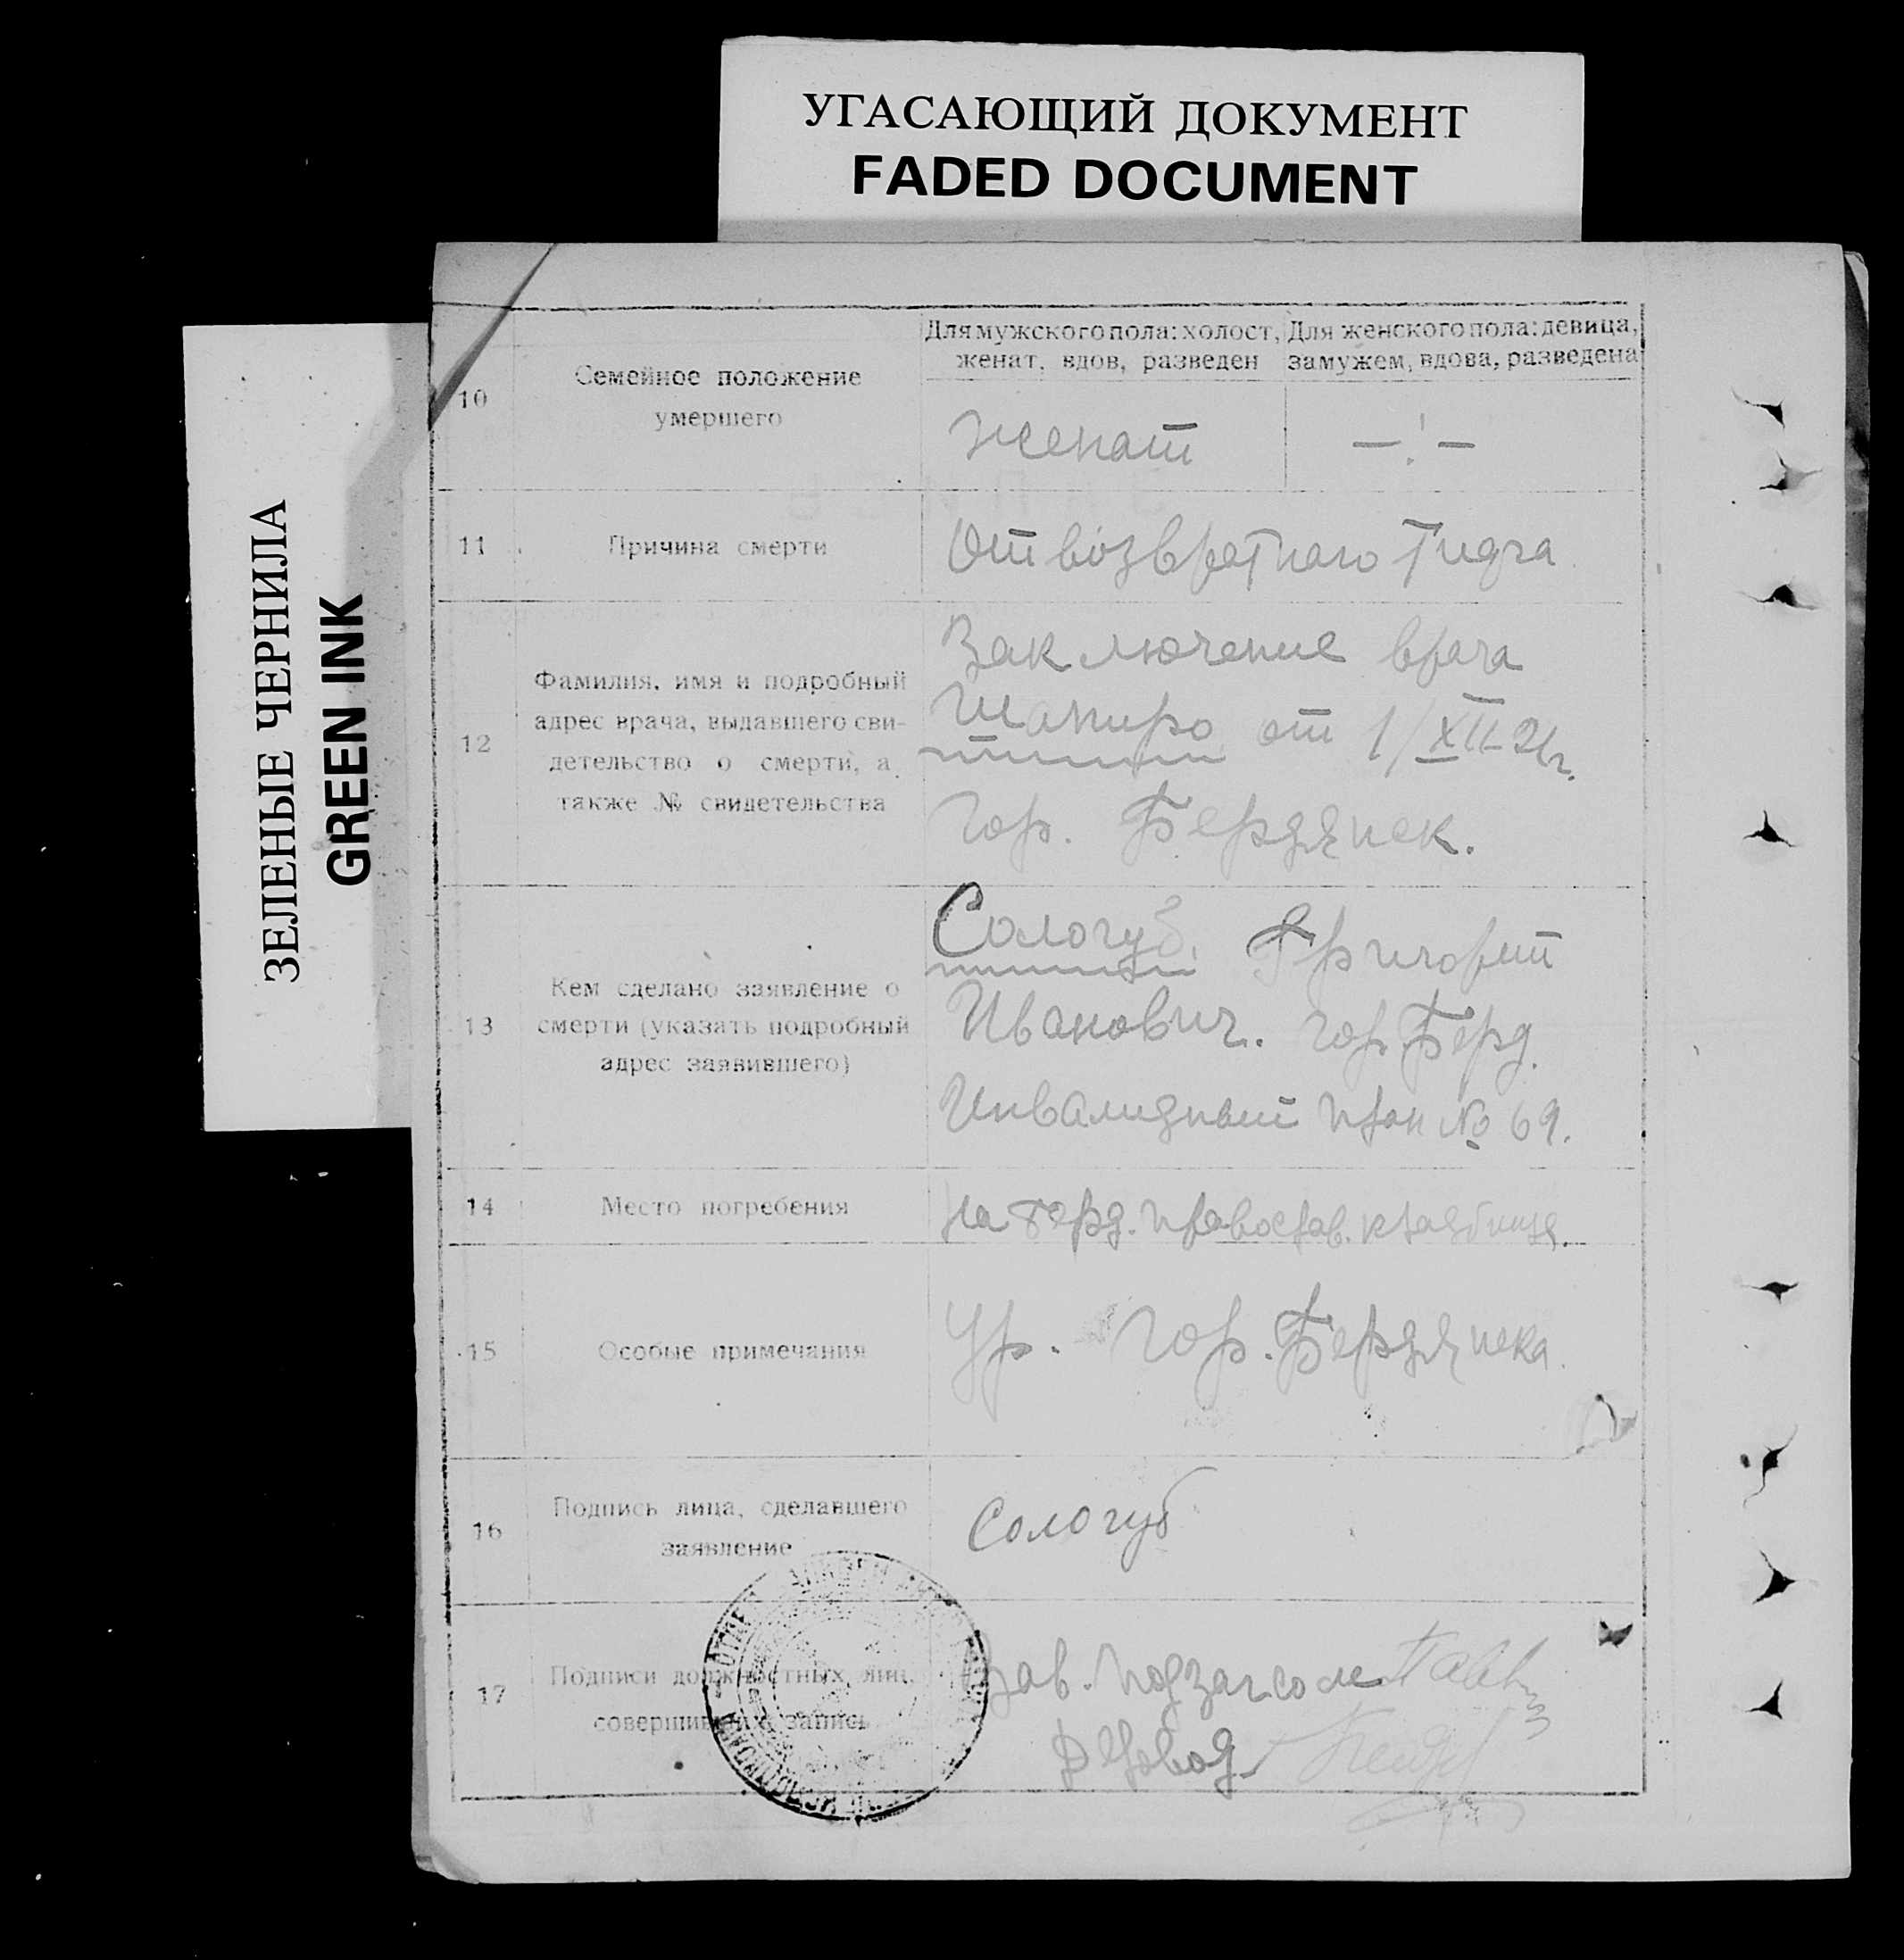 УГАСАЮЩИЙ ДОКУМЕНТ
FADED DOCUMENT
ЗЕЛЕНЫЕ ЧЕРНИЛА
GREEN INK
Для мужского пола: холост, женат, вдов, разведен
Для женского пола: девица, замужем, вдова, разведена
10
Семейное положение
умершего
женат
11
Причина смерти
От возвратного Тифа
12
Фамилия, имя и подробный
адрес врача, выдавшего сви-
детельство о смерти, а
также № свидетельства
Заключение врача
Шапиро от 1/XII-21г.
гор. Бердянск.
13
Кем сделано заявление о
смерти (указать подробный
адрес заявившего)
Сологуб. Григорий
Иванович. гор. Берд.
Инвалидный № 69.
14
Место погребения
на Берд. православ. кладбище.
15
Особые примечания
Ур. гор. Бердянска.
16
Подпись лица, сделавшего
заявление
Сологуб
17
Подписи должностных лиц,
совершивших запись
Зав. подзагсом
Деловод.